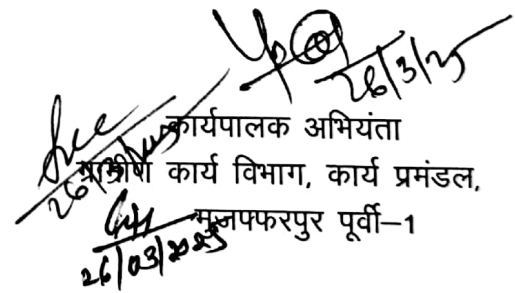 26/3/25
कार्यपालक अभियंता
ग्रामीण कार्य विभाग, कार्य प्रमंडल,
मुजफ्फरपुर पूर्वी–1
26/03/2025